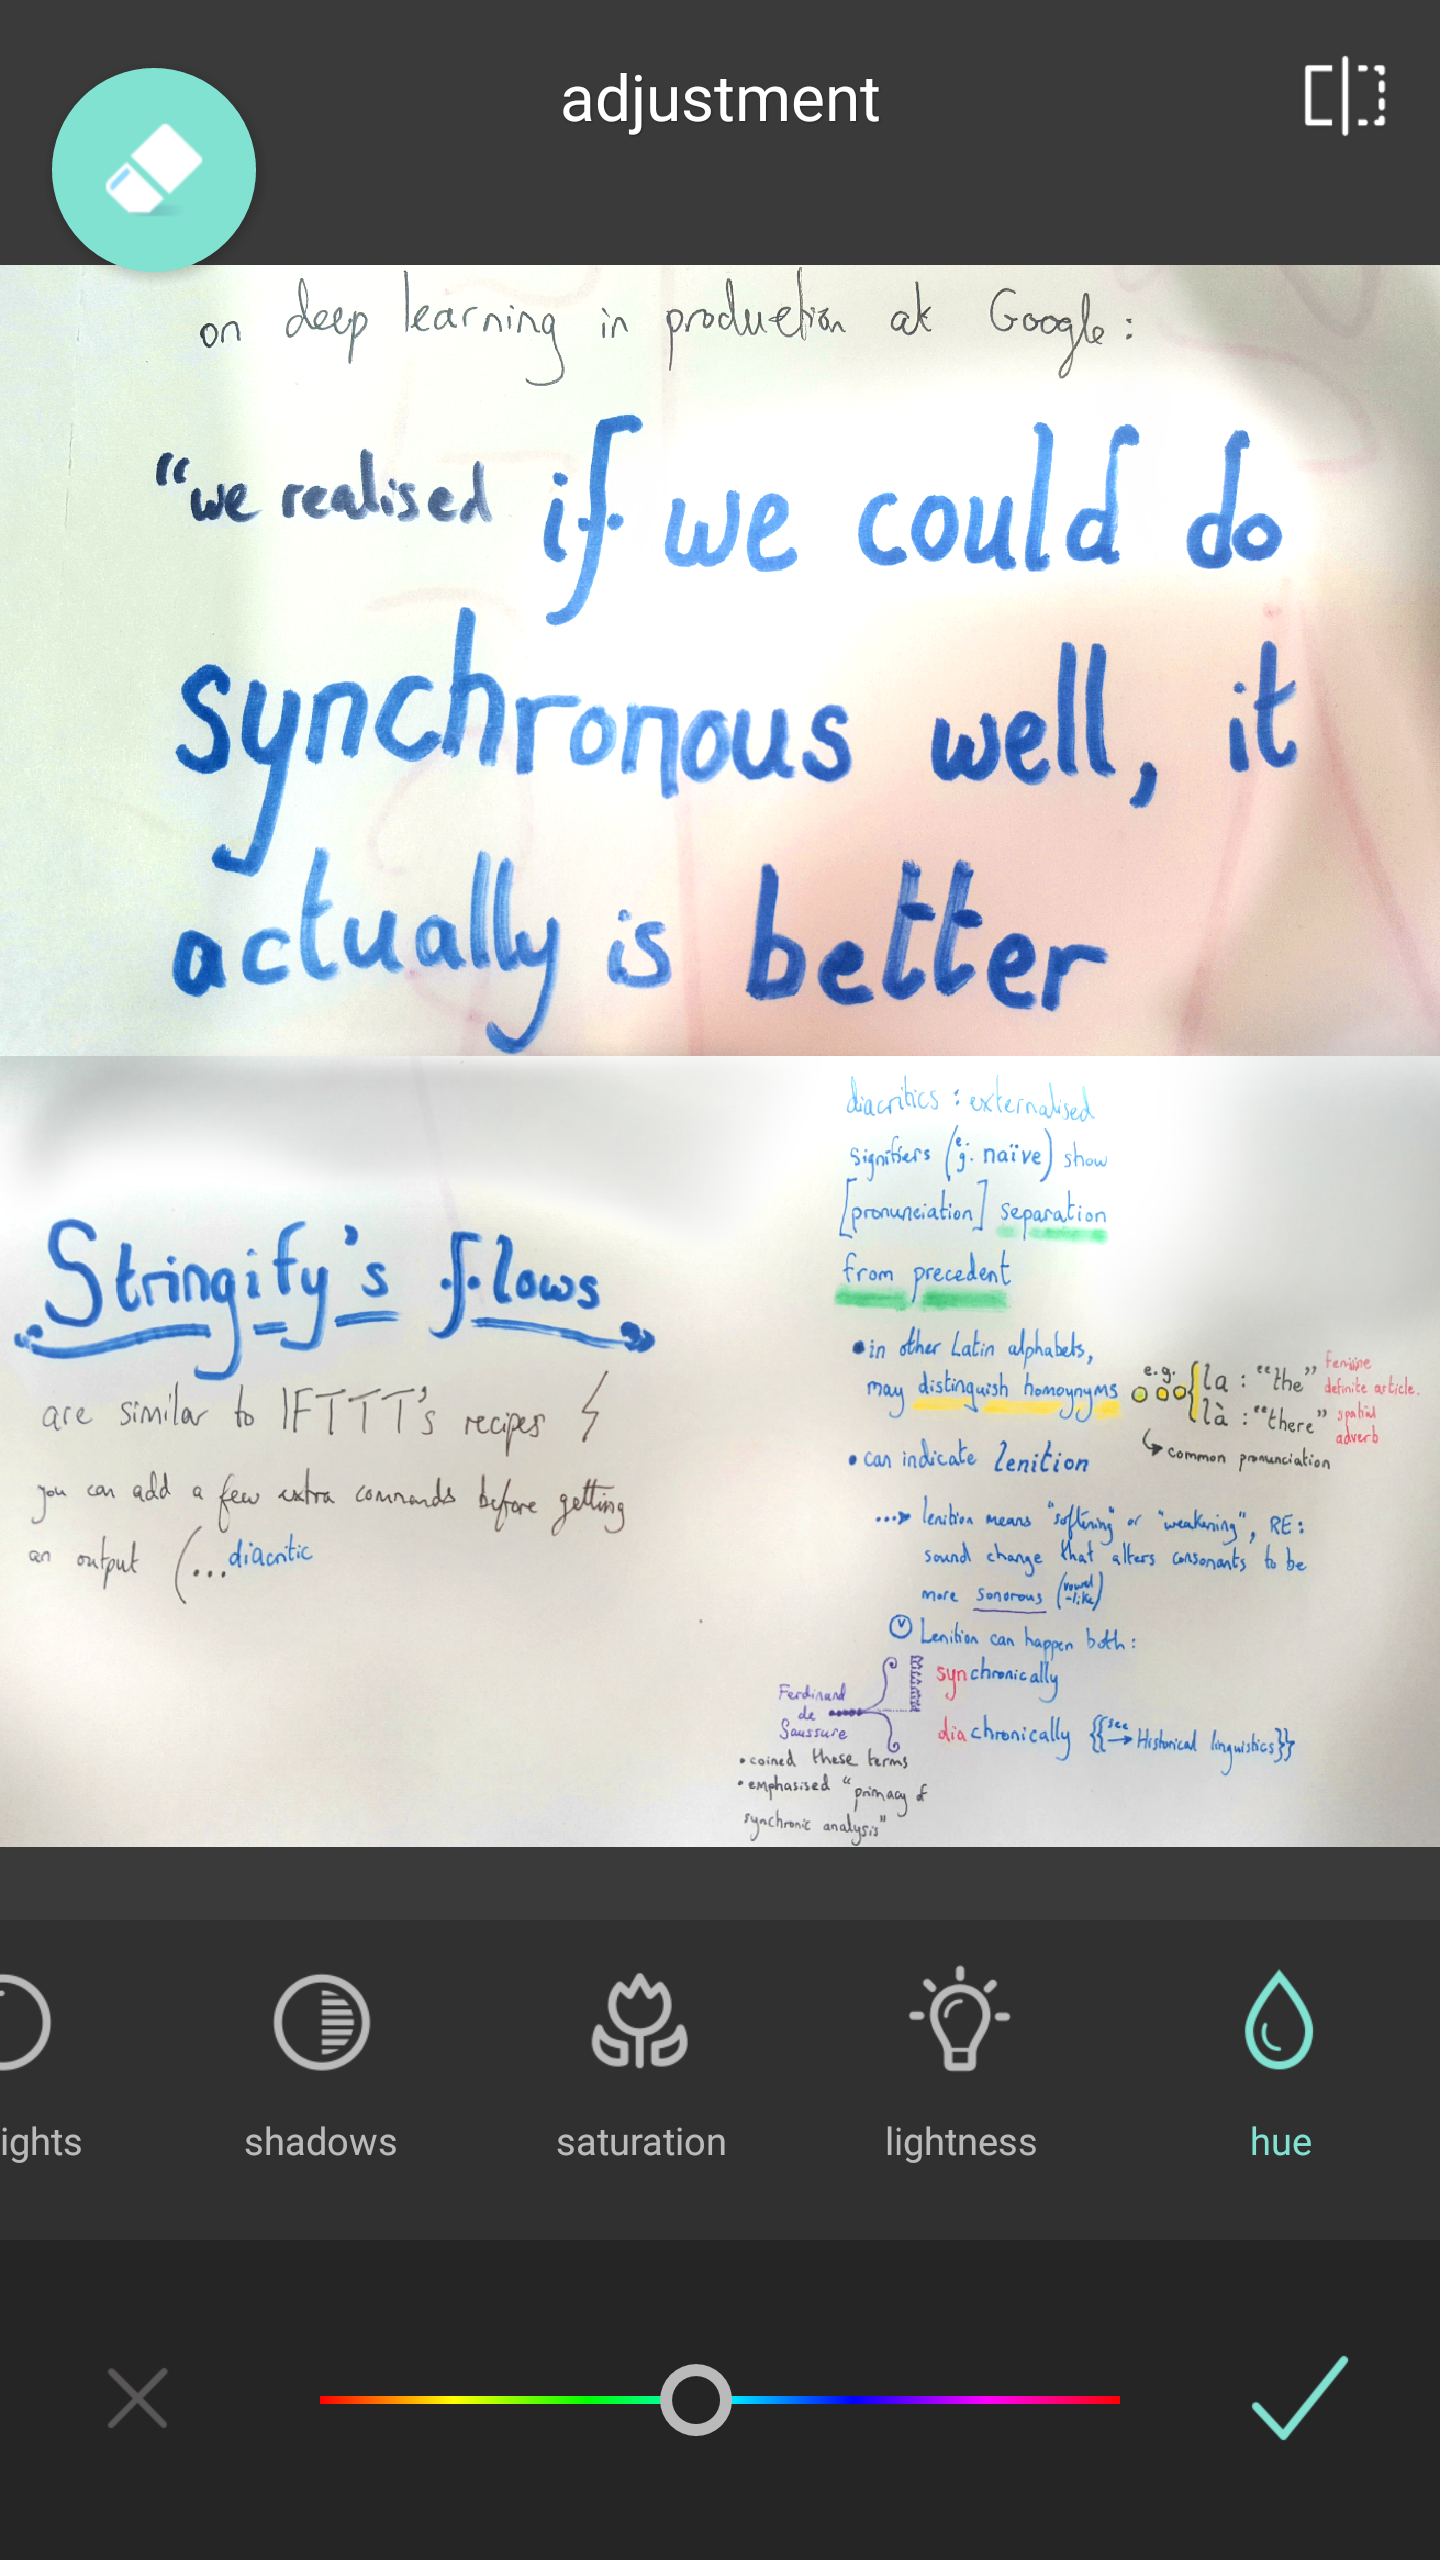 adjustment
on deep learning in production at Google:
"we realised if we could do
synchronous well, it
actually is better
Stringify's flows
are similar to IFTTT's recipes
you can add a few extra commands before getting
an output (...diacritic
diacritics : externalised
signifiers (e.g. naïve) show
[pronunciation] separation
from precedent
•in other Latin alphabets,
may distinguish homoynyms
e.g.
la : "the" feminine definite article.
là : "there" spatial adverb
common pronunciation
•can indicate lenition
...→ lenition means "softening" or "weakening", RE:
sound change that alters consonants to be
more sonorous (vowel-like)
Lenition can happen both:
synchronically
diachronically {{see → Historical linguistics}}
Ferdinand
de
Saussure
•coined these terms
•emphasised "primacy of
synchronic analysis"
ights
shadows
saturation
lightness
hue